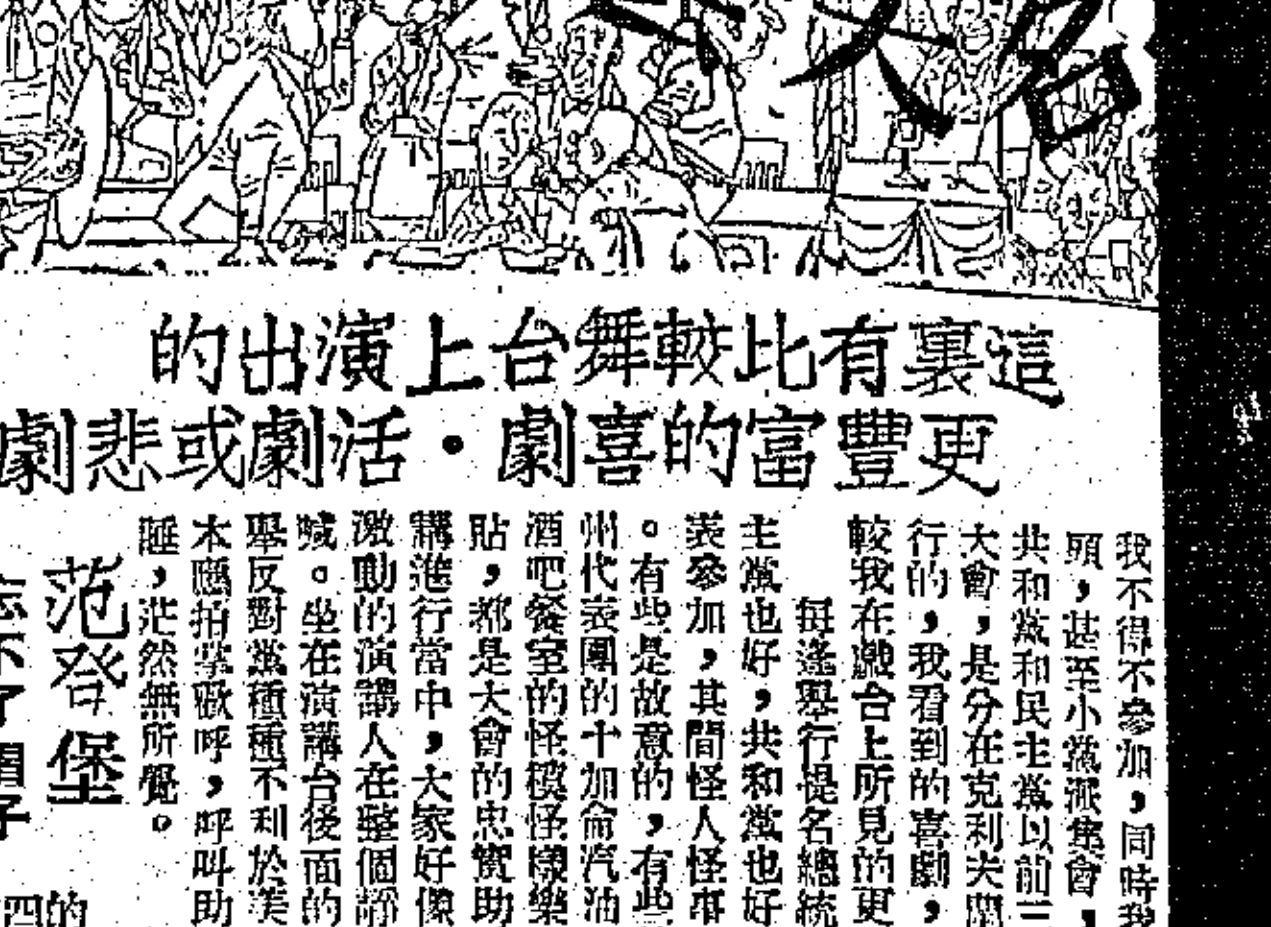 這裏有比較舞台上演出的
更豐富的喜劇・活劇或悲劇
我不得不參加，同時我
頭，甚至小黨派集會，
共和黨和民主黨以前三
大會，是分在克利夫蘭
行的，我看到的喜劇，
較我在戲台上所見的更
每逢舉行提名總統
主黨也好，共和黨也好
表參加，其間怪人怪事
。有些是故意的，有些
州代表團的十加侖汽油
酒吧餐室的怪模怪樣樂
貼，都是大會的忠實助
講進行當中，大家好像
激動的演講人在整個靜
喊。坐在演講台後面的
舉反對黨種種不利於美
本應拍掌歡呼，呼叫助
睡，茫然無所覺。
范登堡
的
忘不了帽子
四